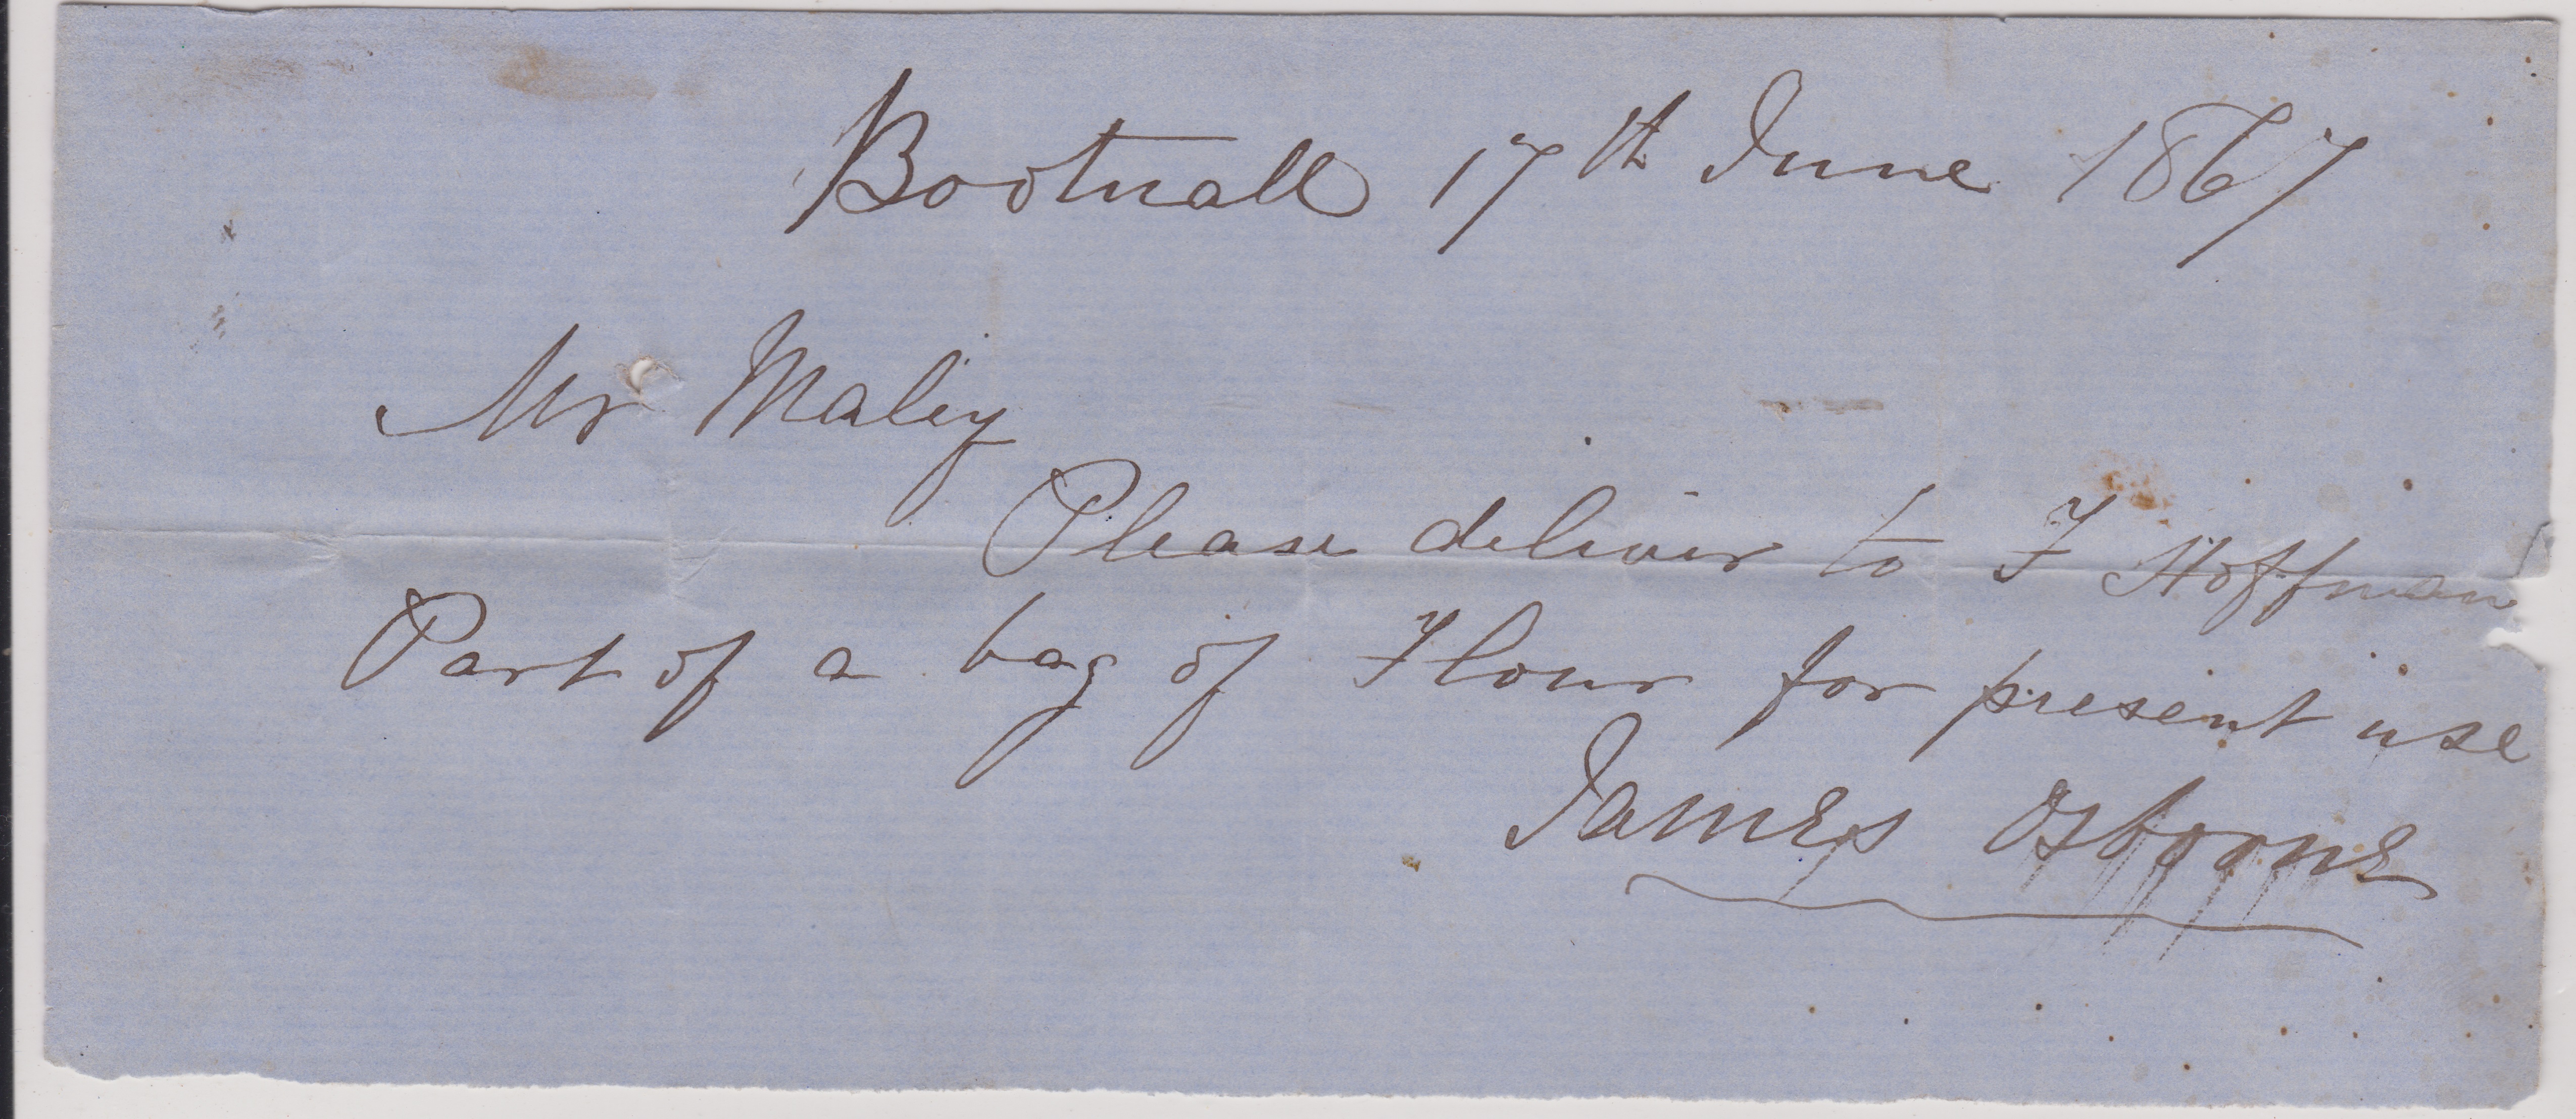 Bootnall 17th June 1867
Mr Maley
Please deliver to F Hoffman
Part of a bag of Flour for present use
James Osborne